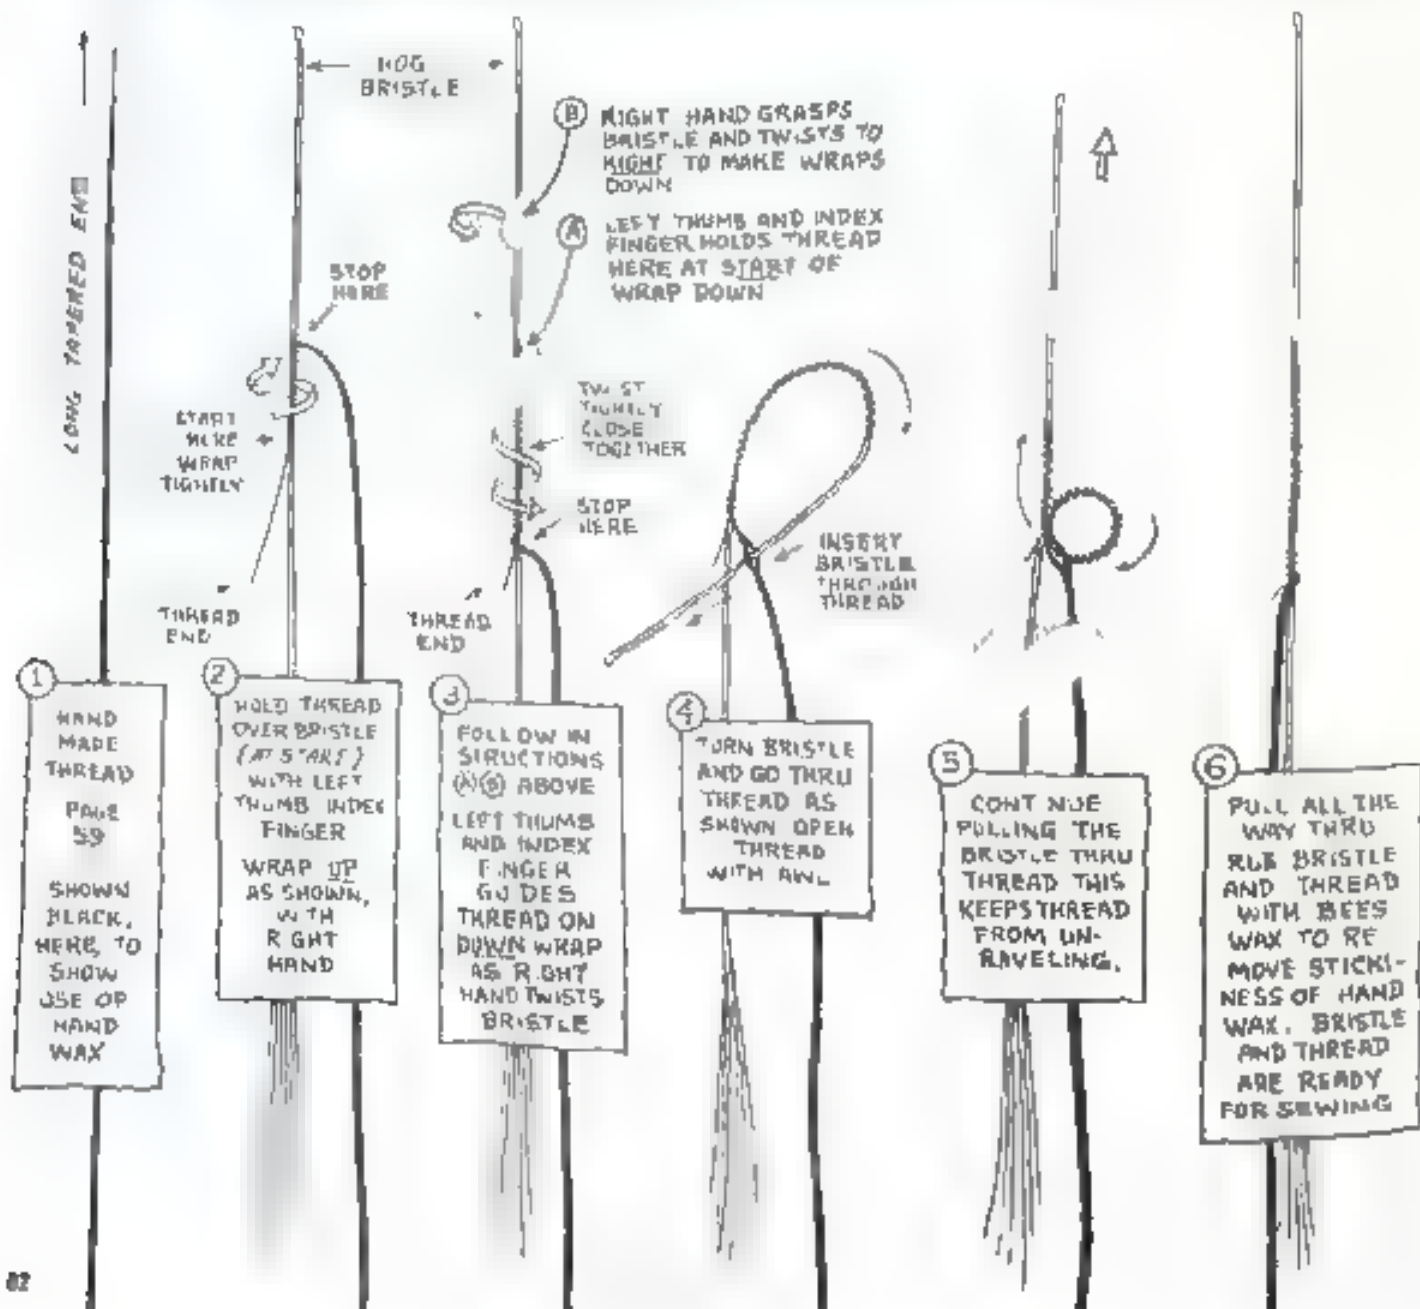 LONG TAPERED END
HOG
BRISTLE
STOP
HERE
START
HERE
WRAP
TIGHTLY
THREAD
END
B RIGHT HAND GRASPS
BRISTLE AND TWISTS TO
RIGHT TO MAKE WRAPS
DOWN
A LEFT THUMB AND INDEX
FINGER HOLDS THREAD
HERE AT START OF
WRAP DOWN
TWIST
TIGHTLY
CLOSE
TOGETHER
STOP
HERE
THREAD
END
INSERT
BRISTLE
THROUGH
THREAD
1
HAND
MADE
THREAD
PAGE
59
SHOWN
BLACK,
HERE, TO
SHOW
USE OF
HAND
WAX
2
HOLD THREAD
OVER BRISTLE
(AT START)
WITH LEFT
THUMB INDEX
FINGER
WRAP UP
AS SHOWN,
WITH
RIGHT
HAND
3
FOLLOW IN
STRUCTIONS
A B ABOVE
LEFT THUMB
AND INDEX
FINGER
GUIDES
THREAD ON
DOWN WRAP
AS RIGHT
HAND TWISTS
BRISTLE
4
TURN BRISTLE
AND GO THRU
THREAD AS
SHOWN OPEN
THREAD
WITH AWL
5
CONTINUE
PULLING THE
BRISTLE THRU
THREAD THIS
KEEPS THREAD
FROM UN-
RAVELING.
6
PULL ALL THE
WAY THRU
RUB BRISTLE
AND THREAD
WITH BEES
WAX TO RE
MOVE STICKI-
NESS OF HAND
WAX. BRISTLE
AND THREAD
ARE READY
FOR SEWING
82